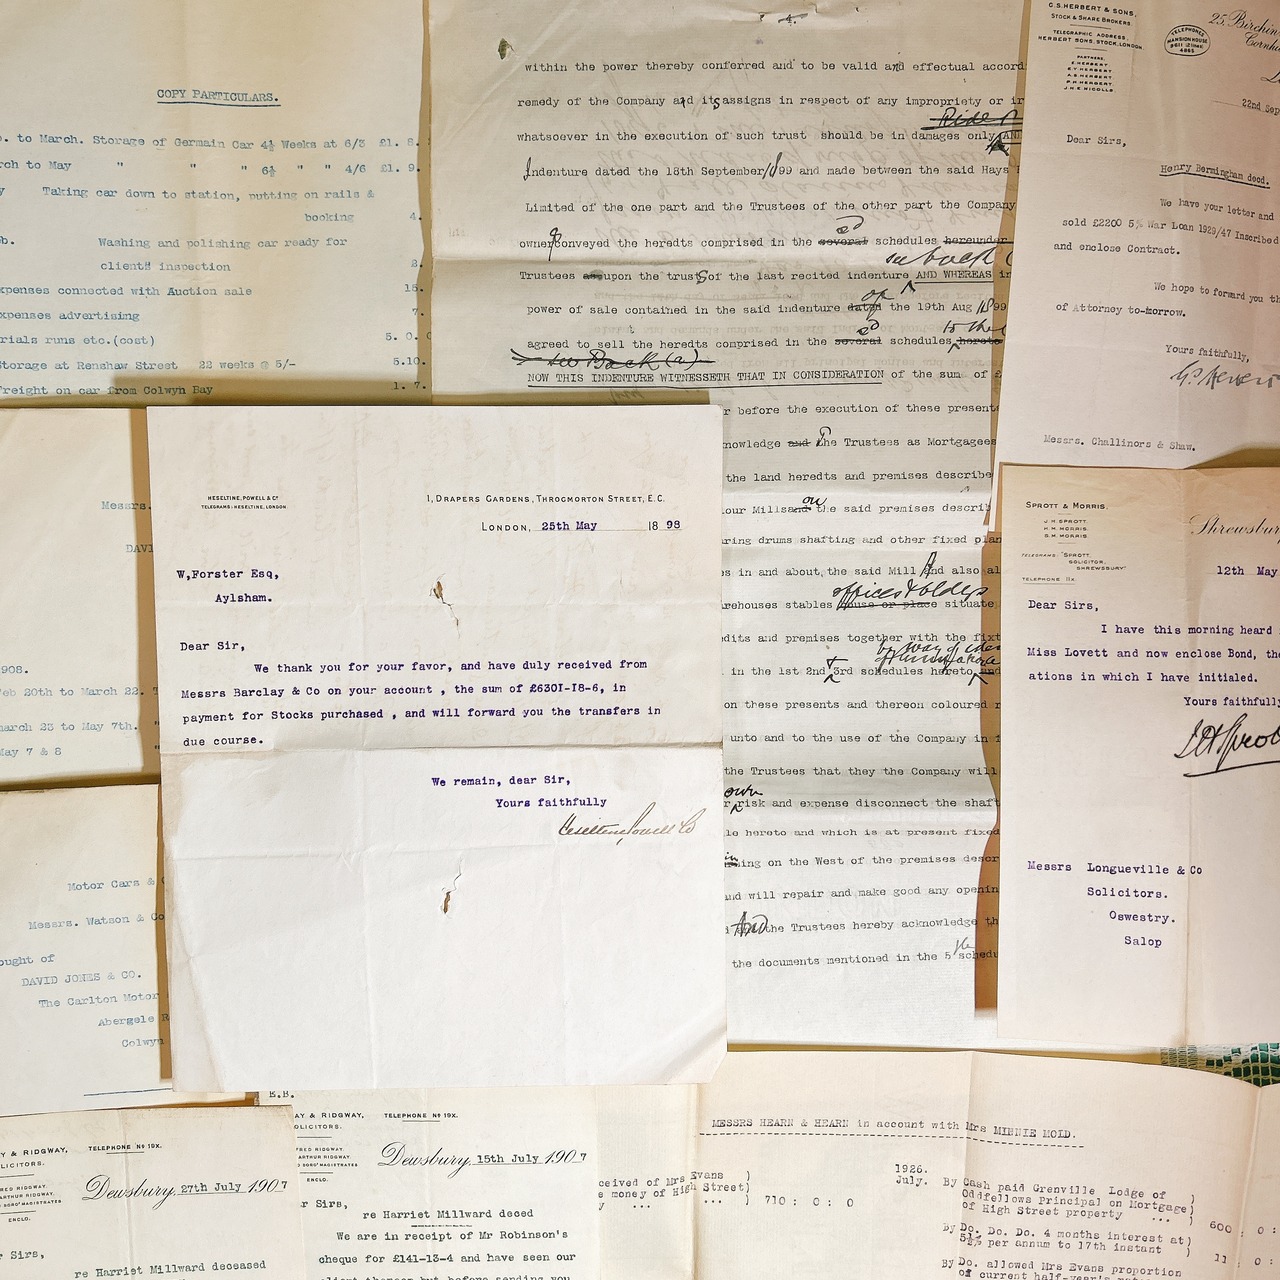 COPY PARTICULARS.
to March. Storage of Germain Car 4½ Weeks at 6/3 £1. 8.
rch to May " " " 6½ " " 4/6 £1. 9.
Taking car down to station, putting on rails &
booking 4.
Washing and polishing car ready for
clients inspection 2.
xpenses connected with Auction sale 15.
xpenses advertising 7.
rials runs etc.(cost) 5. 0. 0
Storage at Renshaw Street 22 weeks @ 5/- 5.10.
Freight on car from Colwyn Bay 1. 7.
4.
within the power thereby conferred and to be valid and effectual accord
remedy of the Company and its assigns in respect of any impropriety or ir
whatsoever in the execution of such trust should be in damages only AN
Indenture dated the 18th September 1899 and made between the said Hays
Limited of the one part and the Trustees of the other part the Company
owner conveyed the heredts comprised in the several schedules hereunder
see back
Trustees as upon the trusts of the last recited indenture AND WHEREAS in
power of sale contained in the said indenture dated of the 19th Aug 1899
agreed to sell the heredts comprised in the several schedules to the hereto
see Back (a)
NOW THIS INDENTURE WITNESSETH THAT IN CONSIDERATION of the sum of £
r before the execution of these present
nowledge and The Trustees as Mortgagees
the land heredts and premises describe
our Mills and on the said premises describ
ring drums shafting and other fixed plan
s in and about the said Mill And also al
offices & bldgs
rehouses stables house or place situate
dits and premises together with the fixt
by way of
in the 1st 2nd + 3rd schedules hereto and
on these presents and thereon coloured r
unto and to the use of the Company in f
the Trustees that they the Company will
own
r risk and expense disconnect the shaft
le hereto and which is at present fixed
ing on the West of the premises descr
and will repair and make good any openin
And the Trustees hereby acknowledge th
the documents mentioned in the 5 the schedu
G.S. HERBERT & SONS.
STOCK & SHARE BROKERS.
TELEGRAPHIC ADDRESS,
HERBERT SONS, STOCK, LONDON.
PARTNERS.
TELEPHONES
MANSION HOUSE
25, Birchin
Cornh
22nd Sep
Dear Sirs,
Henry Bermingham decd.
We have your letter and
sold £2200 5% War Loan 1929/47 Inscribed
and enclose Contract.
We hope to forward you th
of Attorney to-morrow.
Yours faithfully,
Messrs. Challinors & Shaw.
Messrs.
DAVI
908.
Feb 20th to March 22.
march 23 to May 7th.
May 7 & 8
HESELTINE, POWELL & Co
TELEGRAMS: HESELTINE, LONDON.
1, DRAPERS GARDENS, THROGMORTON STREET, E.C.
LONDON, 25th May 1898
W,Forster Esq,
Aylsham.
Dear Sir,
We thank you for your favor, and have duly received from
Messrs Barclay & Co on your account , the sum of £6301-18-6, in
payment for Stocks purchased , and will forward you the transfers in
due course.
We remain, dear Sir,
Yours faithfully
Heseltine Powell & Co
SPROTT & MORRIS.
J. H. SPROTT.
H. M. MORRIS.
S. M. MORRIS.
TELEGRAMS: "SPROTT,
SOLICITOR,
SHREWSBURY"
TELEPHONE 11x.
Shrewsbury
12th May
Dear Sirs,
I have this morning heard
Miss Lovett and now enclose Bond, the
ations in which I have initialed.
Yours faithfully
J H Sprott
Messrs Longueville & Co
Solicitors.
Oswestry.
Salop
Motor Cars &
Messrs. Watson & Co
ought of
DAVID JONES & CO.
The Carlton Motor
Abergele R
Colwyn
Y & RIDGWAY,
LICITORS.
TELEPHONE No 19X.
ENCLO.
Dewsbury, 27th July 1907
r Sirs,
re Harriet Millward deceased
E.B.
AY & RIDGWAY,
OLICITORS.
TELEPHONE No 19X.
ENCLO.
Dewsbury, 15th July 1907
r Sirs,
re Harriet Millward deced
We are in receipt of Mr Robinson's
cheque for £141-13-4 and have seen our
client thereon but before sending you
MESSRS HEARN & HEARN in account with Mrs MINNIE MOLD.
ceived of Mrs Evans )
e money of High Street)
y ... ... ) 710 : 0 : 0
1926.
July. By Cash paid Grenville Lodge of )
Oddfellows Principal on Mortgage)
of High Street property ... ) 600 : 0 :
By Do. Do. Do. 4 months interest at)
5½% per annum to 17th instant ) 11 : 0 :
By Do. allowed Mrs Evans proportion
of current half-year's